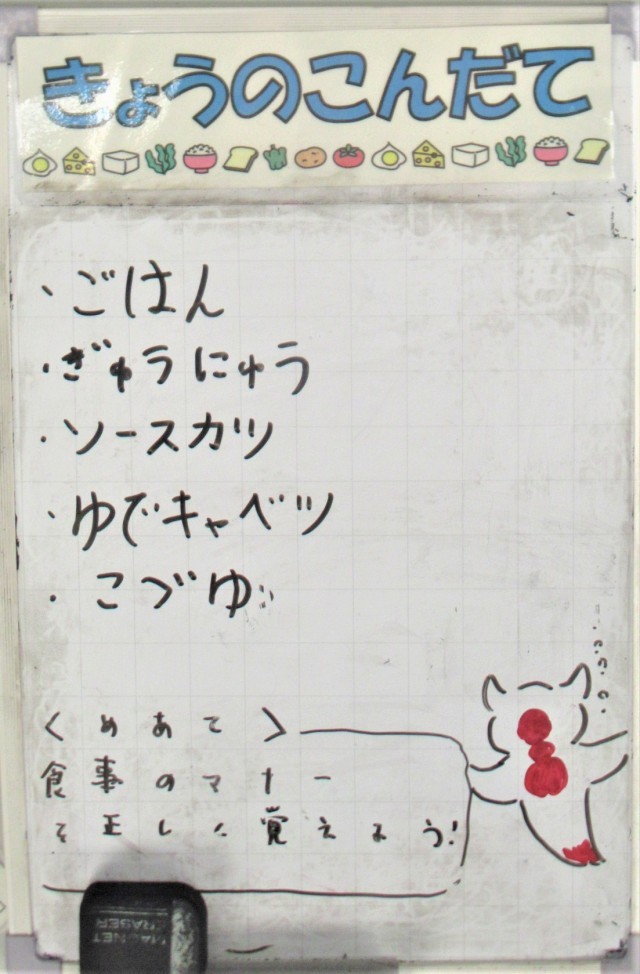 きょうのこんだて
・ごはん
・ぎゅうにゅう
・ソースカツ
・ゆでキャベツ
・こづゆ
<めあて>
食事のマナー
を正しく覚えよう!
MAGNET
ERASER